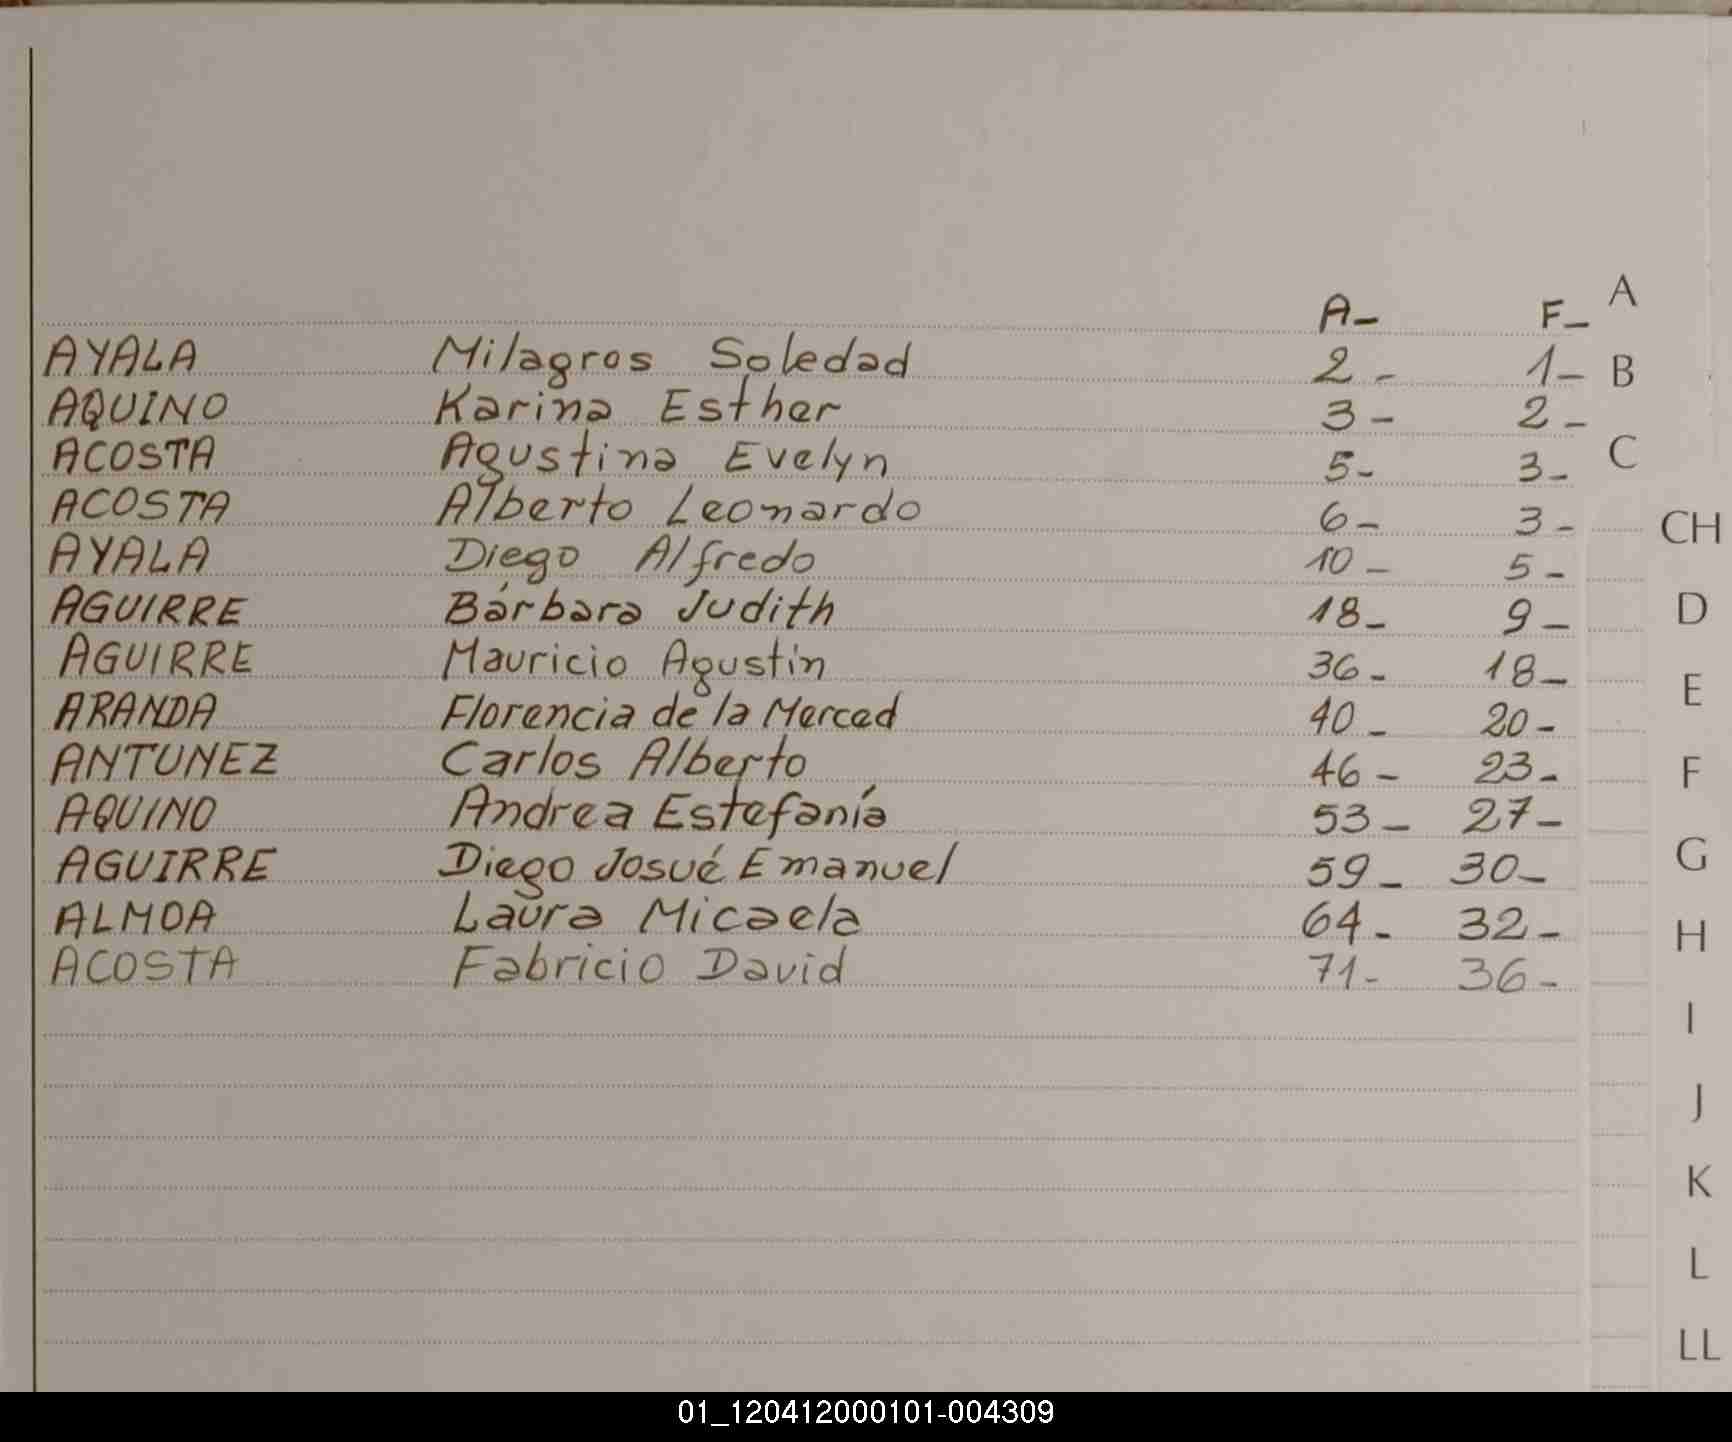 A- F- A
AYALA Milagros Soledad 2- 1- B
AQUINO Karina Esther 3- 2-
ACOSTA Agustina Evelyn 5- 3- C
ACOSTA Alberto Leonardo 6- 3- CH
AYALA Diego Alfredo 10- 5-
AGUIRRE Bárbara Judith 18- 9- D
AGUIRRE Mauricio Agustin 36- 18-
ARANDA Florencia de la Merced 40- 20- E
ANTUNEZ Carlos Alberto 46- 23- F
AQUINO Andrea Estefanía 53- 27-
AGUIRRE Diego Josué Emanuel 59- 30- G
ALMOA Laura Micaela 64- 32- H
ACOSTA Fabricio David 71- 36-
I
J
K
L
LL
01_120412000101-004309